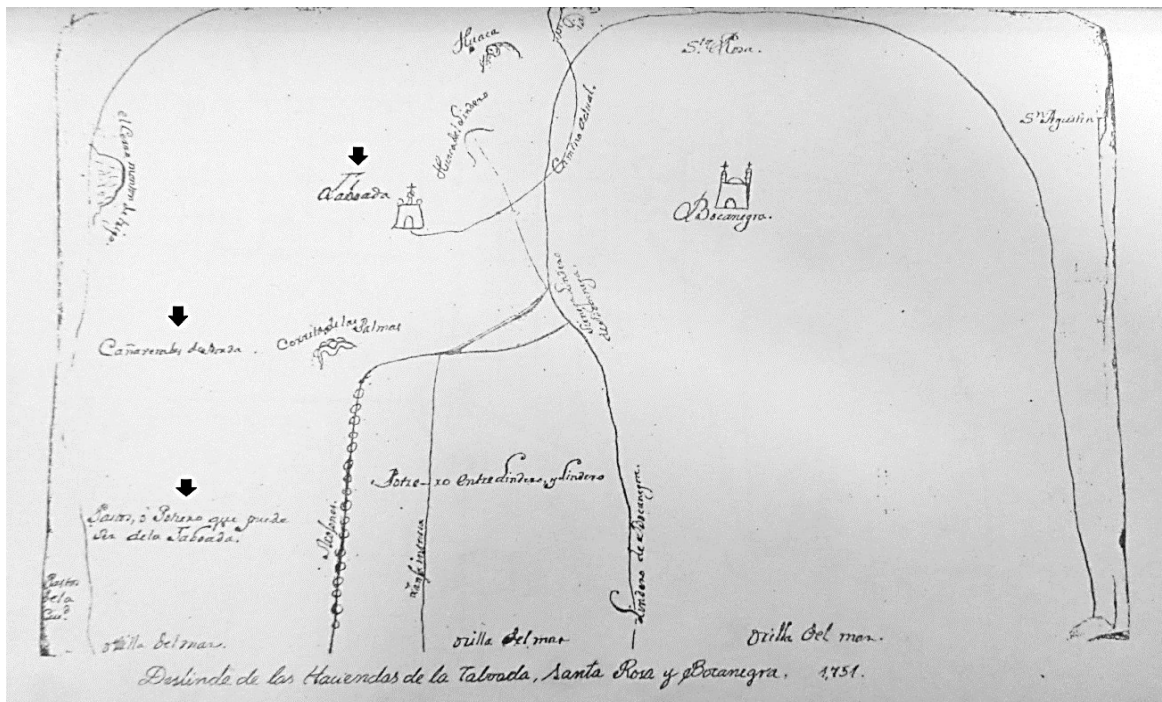 Huaca
Sta. Rosa.
Sn. Agustin
Camino actual.
Huaca del Lindero
Taboada
Bocanegra.
Lindero
Cañaverales
Corrito de las Palmas
Potre-ro entre Lindero, y Lindero
Pastos, ó Potrero que puede
ser de la Taboada.
Mojones.
Lindero de Bocanegra.
Pastos
de la
orilla del mar.
orilla del mar
orilla del mar.
Deslinde de las Haciendas de la Taboada, Santa Rosa y Bocanegra. 1,751.